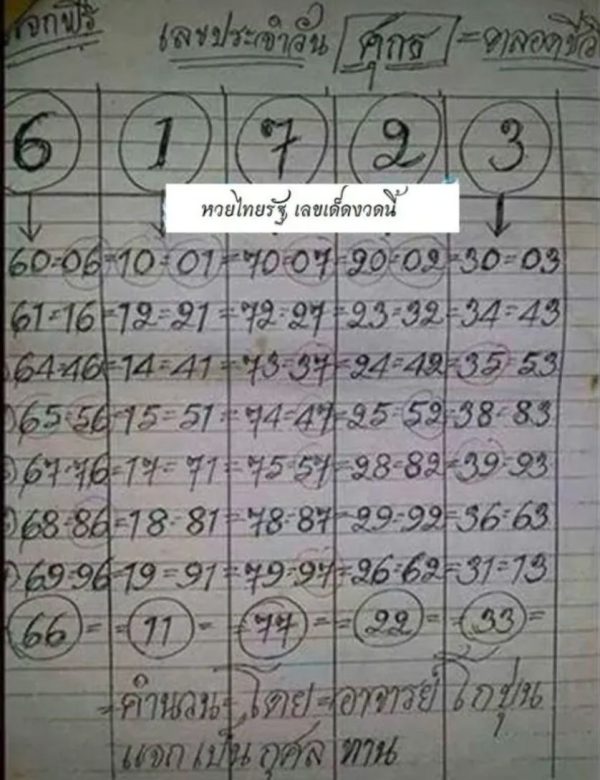 แจกฟรี เลขประจำวัน ศุกร์ = ตลอดชีวิ
6 1 7 2 3
หวยไทยรัฐ เลขเด็ดงวดนี้
60=06=10=01=70=07=20=02=30=03
61=16=12=21=72=27=23=32=34=43
64=46=14=41=73=37=24=42=35=53
65=56=15=51=74=47=25=52=38=83
67=76=17=71=75=57=28=82=39=93
68=86=18=81=78=87=29=92=36=63
69=96=19=91=79=97=26=62=31=13
66= =11= =77= =22= =33=
=คำนวน=โดย=อาจารย์ โกปุ่น
แจกเป็นกุศลทาน